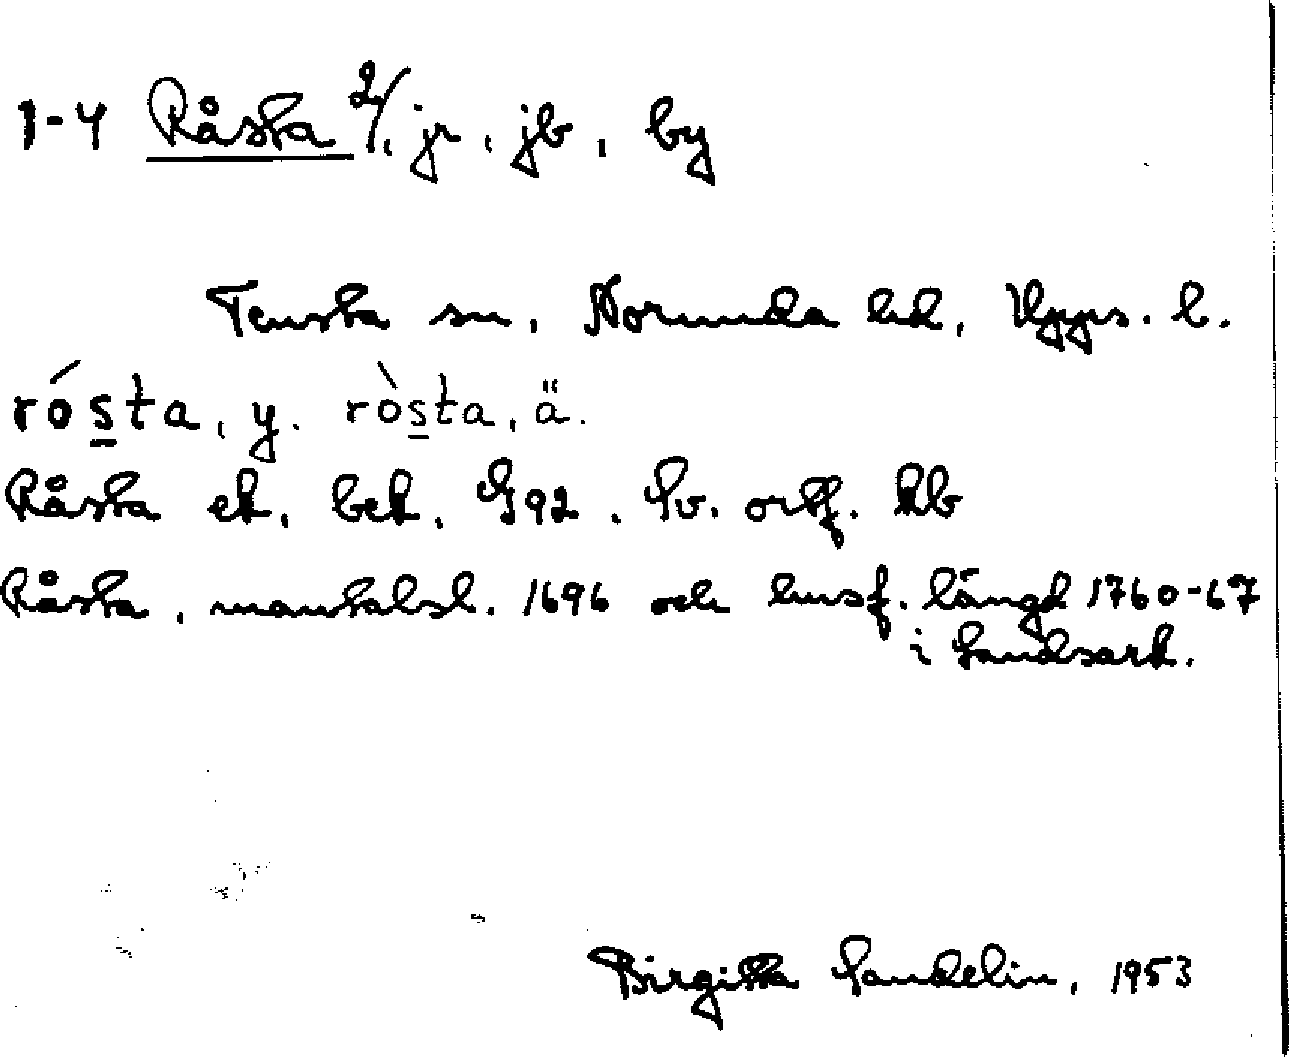 1-4 Råsta 2/, jr, jb, by
Tensta sn, Norunda hd, Upps. l.
rósta, y. ròsta, ä.
Råsta ek. bek. S92. Sv. ortf. Rb
Råsta, mantalsl. 1696 och husf. längd 1760-67
i Landsark.
Birgitta Sandelin, 1953